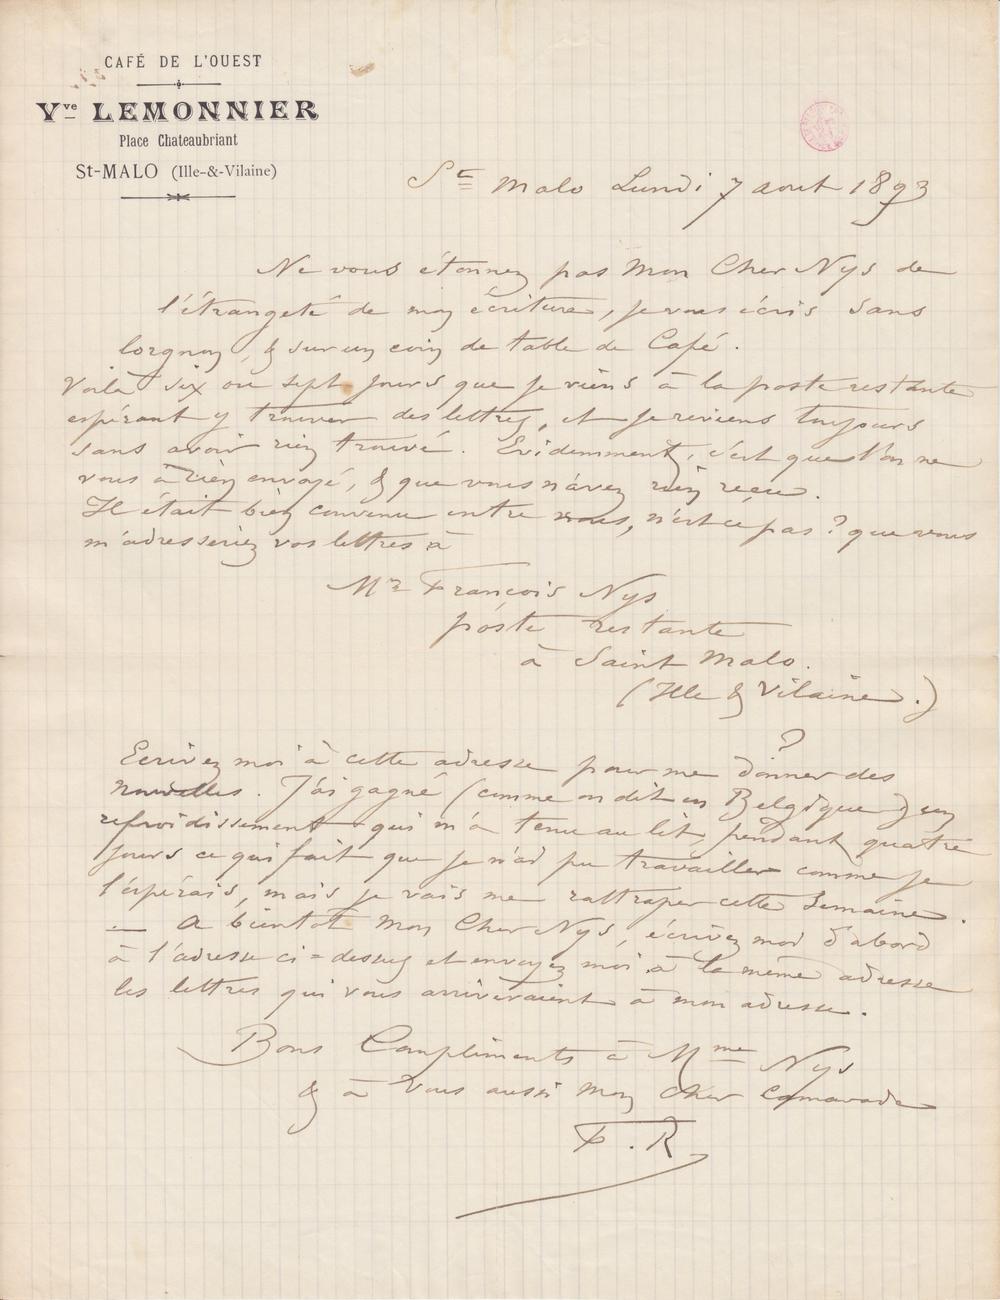 CAFÉ DE L'OUEST
Vve LEMONNIER
Place Chateaubriant
St-MALO (Ille-&-Vilaine)
St Malo Lundi 7 aout 1893
Ne vous étonnez pas Mon Cher Nys de
l'étrangeté de mon écriture, je vous écris sans
lorgnon, & sur un coin de table de Café.
Voilà six ou sept jours que je viens à la poste restante
espérant y trouver des lettres, et je reviens toujours
sans avoir rien trouvé. Evidemment, c'est que l'on ne
vous à rien envoyé, & que vous n'avez rien recu.
Il était bien convenu entre nous, n'est ce pas? que vous
m'adresseriez vos lettres à
Mr François Nys
poste restante
à Saint Malo.
(Ille & Vilaine.)
Ecrivez moi à cette adresse pour me donner des
nouvelles. J'ai gagné (comme on dit en Belgique?) un
refroidissement qui m'a tenu au lit, pendant quatre
jours ce qui fait que je n'ai pu travailler comme je
l'espérais, mais je vais me rattraper cette semaine.
— A bientot Mon Cher Nys, écrivez moi d'abord
à l'adresse ci=dessus et envoyez moi à la même adresse
les lettres qui vous arriveraient à mon adresse.
Bons Compliments à Mme Nys
& à Vous aussi Mon Cher Camarade
F. R